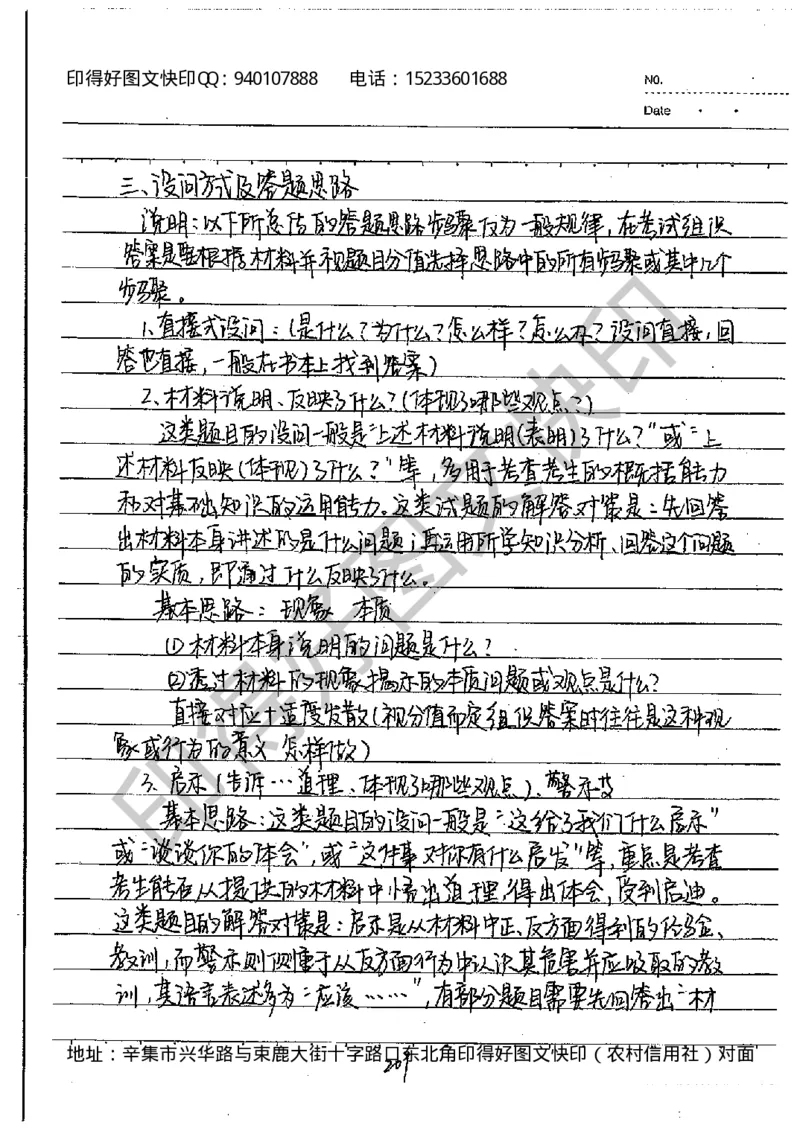 印得好图文快印QQ：940107888 电话：15233601688
No.
Date
三、设问方式及答题思路
说明：以下所总结的答题思路步骤仅为一般规律，在考试组织
答案是要根据材料并视题目分值选择思路中的所有步骤或其中几个
步骤。
1、直接式设问：（是什么？为什么？怎么样？怎么办？设问直接，回
答也直接，一般在书本上找到答案）
2、材料说明、反映了什么？（体现了哪些观点？）
这类题目的设问一般是“上述材料说明（表明）了什么？”或“上
述材料反映（体现）了什么？”等，多用于考查考生的概括能力
和对基础知识的运用能力。这类试题的解答对策是：先回答
出材料本身讲述的是什么问题；再运用所学知识分析、回答这个问题
的实质，即通过什么反映了什么。
基本思路：现象 本质
(1)材料本身说明的问题是什么？
(2)透过材料的现象揭示的本质问题或观点是什么？
直接对应+适度发散（视分值而定组织答案时往往是这种现
象或行为的意义 怎样做）
3、启示（告诉…道理、体现了哪些观点）、警示类
基本思路：这类题目的设问一般是“这给了我们什么启示”
或“谈谈你的体会”，或“这件事对你有什么启发”等，重点是考查
考生能否从提供的材料中悟出道理，得出体会，受到启迪。
这类题目的解答对策是：启示是从材料中正、反方面得到的经验、
教训，而警示则侧重于从反方面行为中认识其危害并应吸取的教
训，其语言表述多为“应该……”，有部分题目需要先回答出“材
地址：辛集市兴华路与束鹿大街十字路口东北角印得好图文快印（农村信用社）对面
201
印得好图文快印